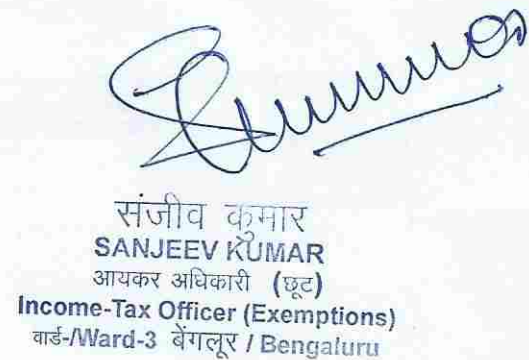 संजीव कुमार
SANJEEV KUMAR
आयकर अधिकारी (छूट)
Income-Tax Officer (Exemptions)
वार्ड-/Ward-3 बेंगलूर / Bengaluru